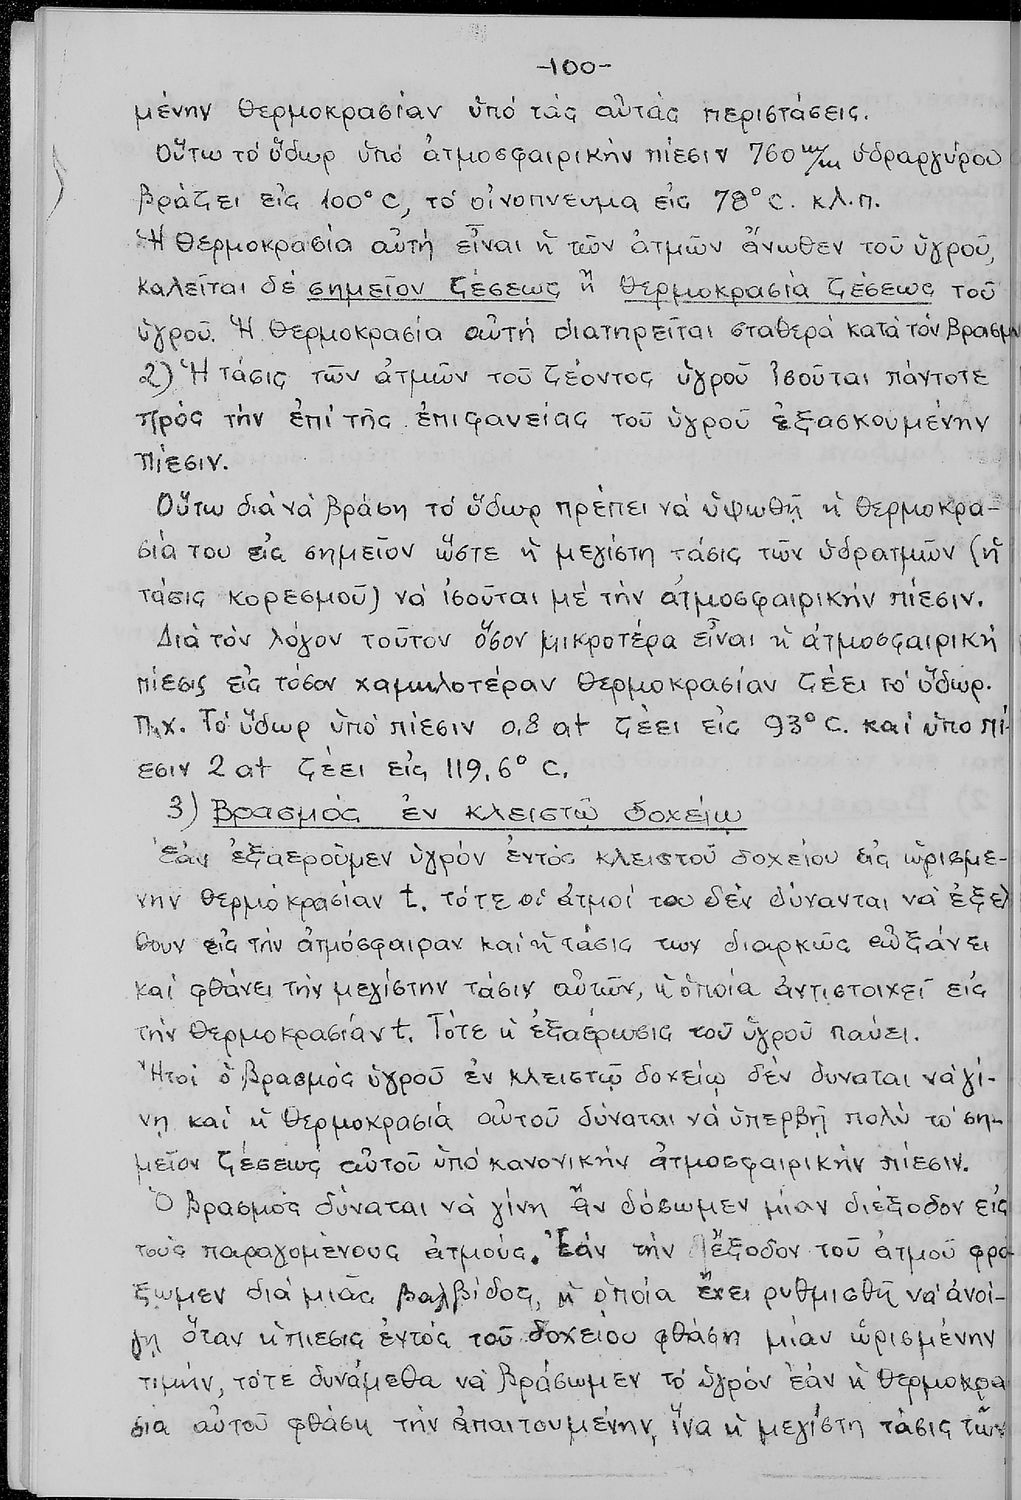 -100-
μένην θερμοκρασίαν ὑπό τάς αὐτάς περιστάσεις.
Οὕτω τό ὕδωρ ὑπό ἀτμοσφαιρικήν πίεσιν 760 m/m ὑδραργύρου
βράζει εἰς 100° C, τό οἰνοπνευμα εἰς 78° C. κλ.π.
Ἡ θερμοκρασία αὐτή εἶναι ἡ τῶν ἀτμῶν ἄνωθεν τοῦ ὑγροῦ,
καλεῖται δέ σημεῖον ζέσεως ἤ θερμοκρασία ζέσεως τοῦ
ὑγροῦ. Ἡ θερμοκρασία αὐτή διατηρεῖται σταθερά κατά τόν βρασμ
2) Ἡ τάσις τῶν ἀτμῶν τοῦ ζέοντος ὑγροῦ ἰσοῦται πάντοτε
πρός τήν ἐπί τῆς ἐπιφανείας τοῦ ὑγροῦ ἐξασκουμένην
πίεσιν.
Οὕτω διά νά βράση τό ὕδωρ πρέπει νά ὑψωθῇ ἡ θερμοκρα-
σία του εἰς σημεῖον ὥστε ἡ μεγίστη τάσις τῶν ὑδρατμῶν (ἡ
τάσις κορεσμοῦ) νά ἰσοῦται μέ τήν ἀτμοσφαιρικήν πίεσιν.
Διά τόν λόγον τοῦτον ὅσον μικροτέρα εἶναι ἡ ἀτμοσφαιρική
πίεσις εἰς τόσον χαμηλοτέραν θερμοκρασίαν ζέει τό ὕδωρ.
π.χ. Τό ὕδωρ ὑπό πίεσιν 0,8 at ζέει εἰς 93° C. καί ὑπο πί-
εσιν 2 at ζέει εἰς 119,6° C.
3) Βρασμός ἐν κλειστῷ δοχείῳ
Ἐάν ἐξαεροῦμεν ὑγρόν ἐντός κλειστοῦ δοχείου εἰς ὡρισμε-
νην θερμοκρασίαν t. τότε οἱ ἀτμοί του δέν δύνανται νά ἐξελ
θουν εἰς τήν ἀτμόσφαιραν καί ἡ τάσις των διαρκῶς αὐξάνει
καί φθάνει τήν μεγίστην τάσιν αὐτῶν, ἡ ὁποία ἀντιστοιχεῖ εἰς
τήν θερμοκρασίαν t. Τότε ἡ ἐξαέρωσις τοῦ ὑγροῦ παύει.
Ἤτοι ὁ βρασμός ὑγροῦ ἐν κλειστῷ δοχείῳ δέν δυναται νά γί-
νῃ καί ἡ θερμοκρασιά αὐτοῦ δύναται νά ὑπερβῇ πολύ τό ση-
μεῖον ζέσεως αὐτοῦ ὑπό κανονικήν ἀτμοσφαιρικήν πίεσιν.
Ὁ βρασμός δύναται νά γίνη ἄν δόσωμεν μίαν διέξοδον εἰς
τούς παραγομένους ἀτμούς. Ἐάν τήν ἔξοδον τοῦ ἀτμοῦ φρά-
ξωμεν διά μιᾶς βαλβίδος, ἡ ὁποία ἔχει ρυθμισθῆ νά ἀνοί-
γῃ ὅταν ἡ πιεσις ἐντός τοῦ δοχείου φθάση μίαν ὡρισμένην
τιμήν, τότε δυνάμεθα νά βράσωμεν τό ὑγρόν ἐάν ἡ θερμοκρα
σια αὐτοῦ φθάση τήν ἀπαιτουμένην, ἵνα ἡ μεγίστη τάσις τῶν